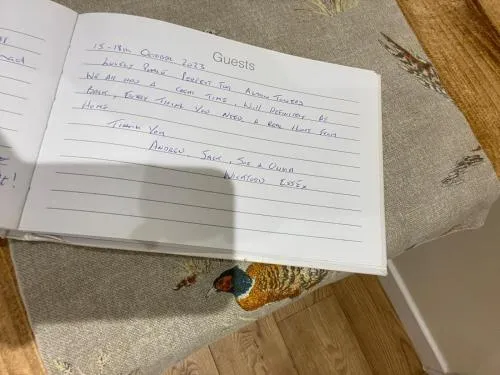 Guests
15-18th October 2023
Lovely Place Perfect for
We all had a great time, will definitely be
back, every thing you need a real home from
home
Thank you
Andrew, Jack, Sue &
Wickford Essex
t!